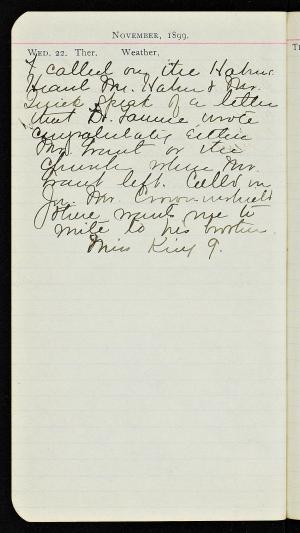 November, 1899.
Wed. 22. Ther. Weather,
I called on the Hahns
Heard Mr. Hahn & Mr.
Quick speak of a letter
that Dr. wrote
congratulating either
Mr. Grant or the
Church when Mr.
Grant left. Called on
Mr.
there wants me to
write to his brother.
Miss King 9.